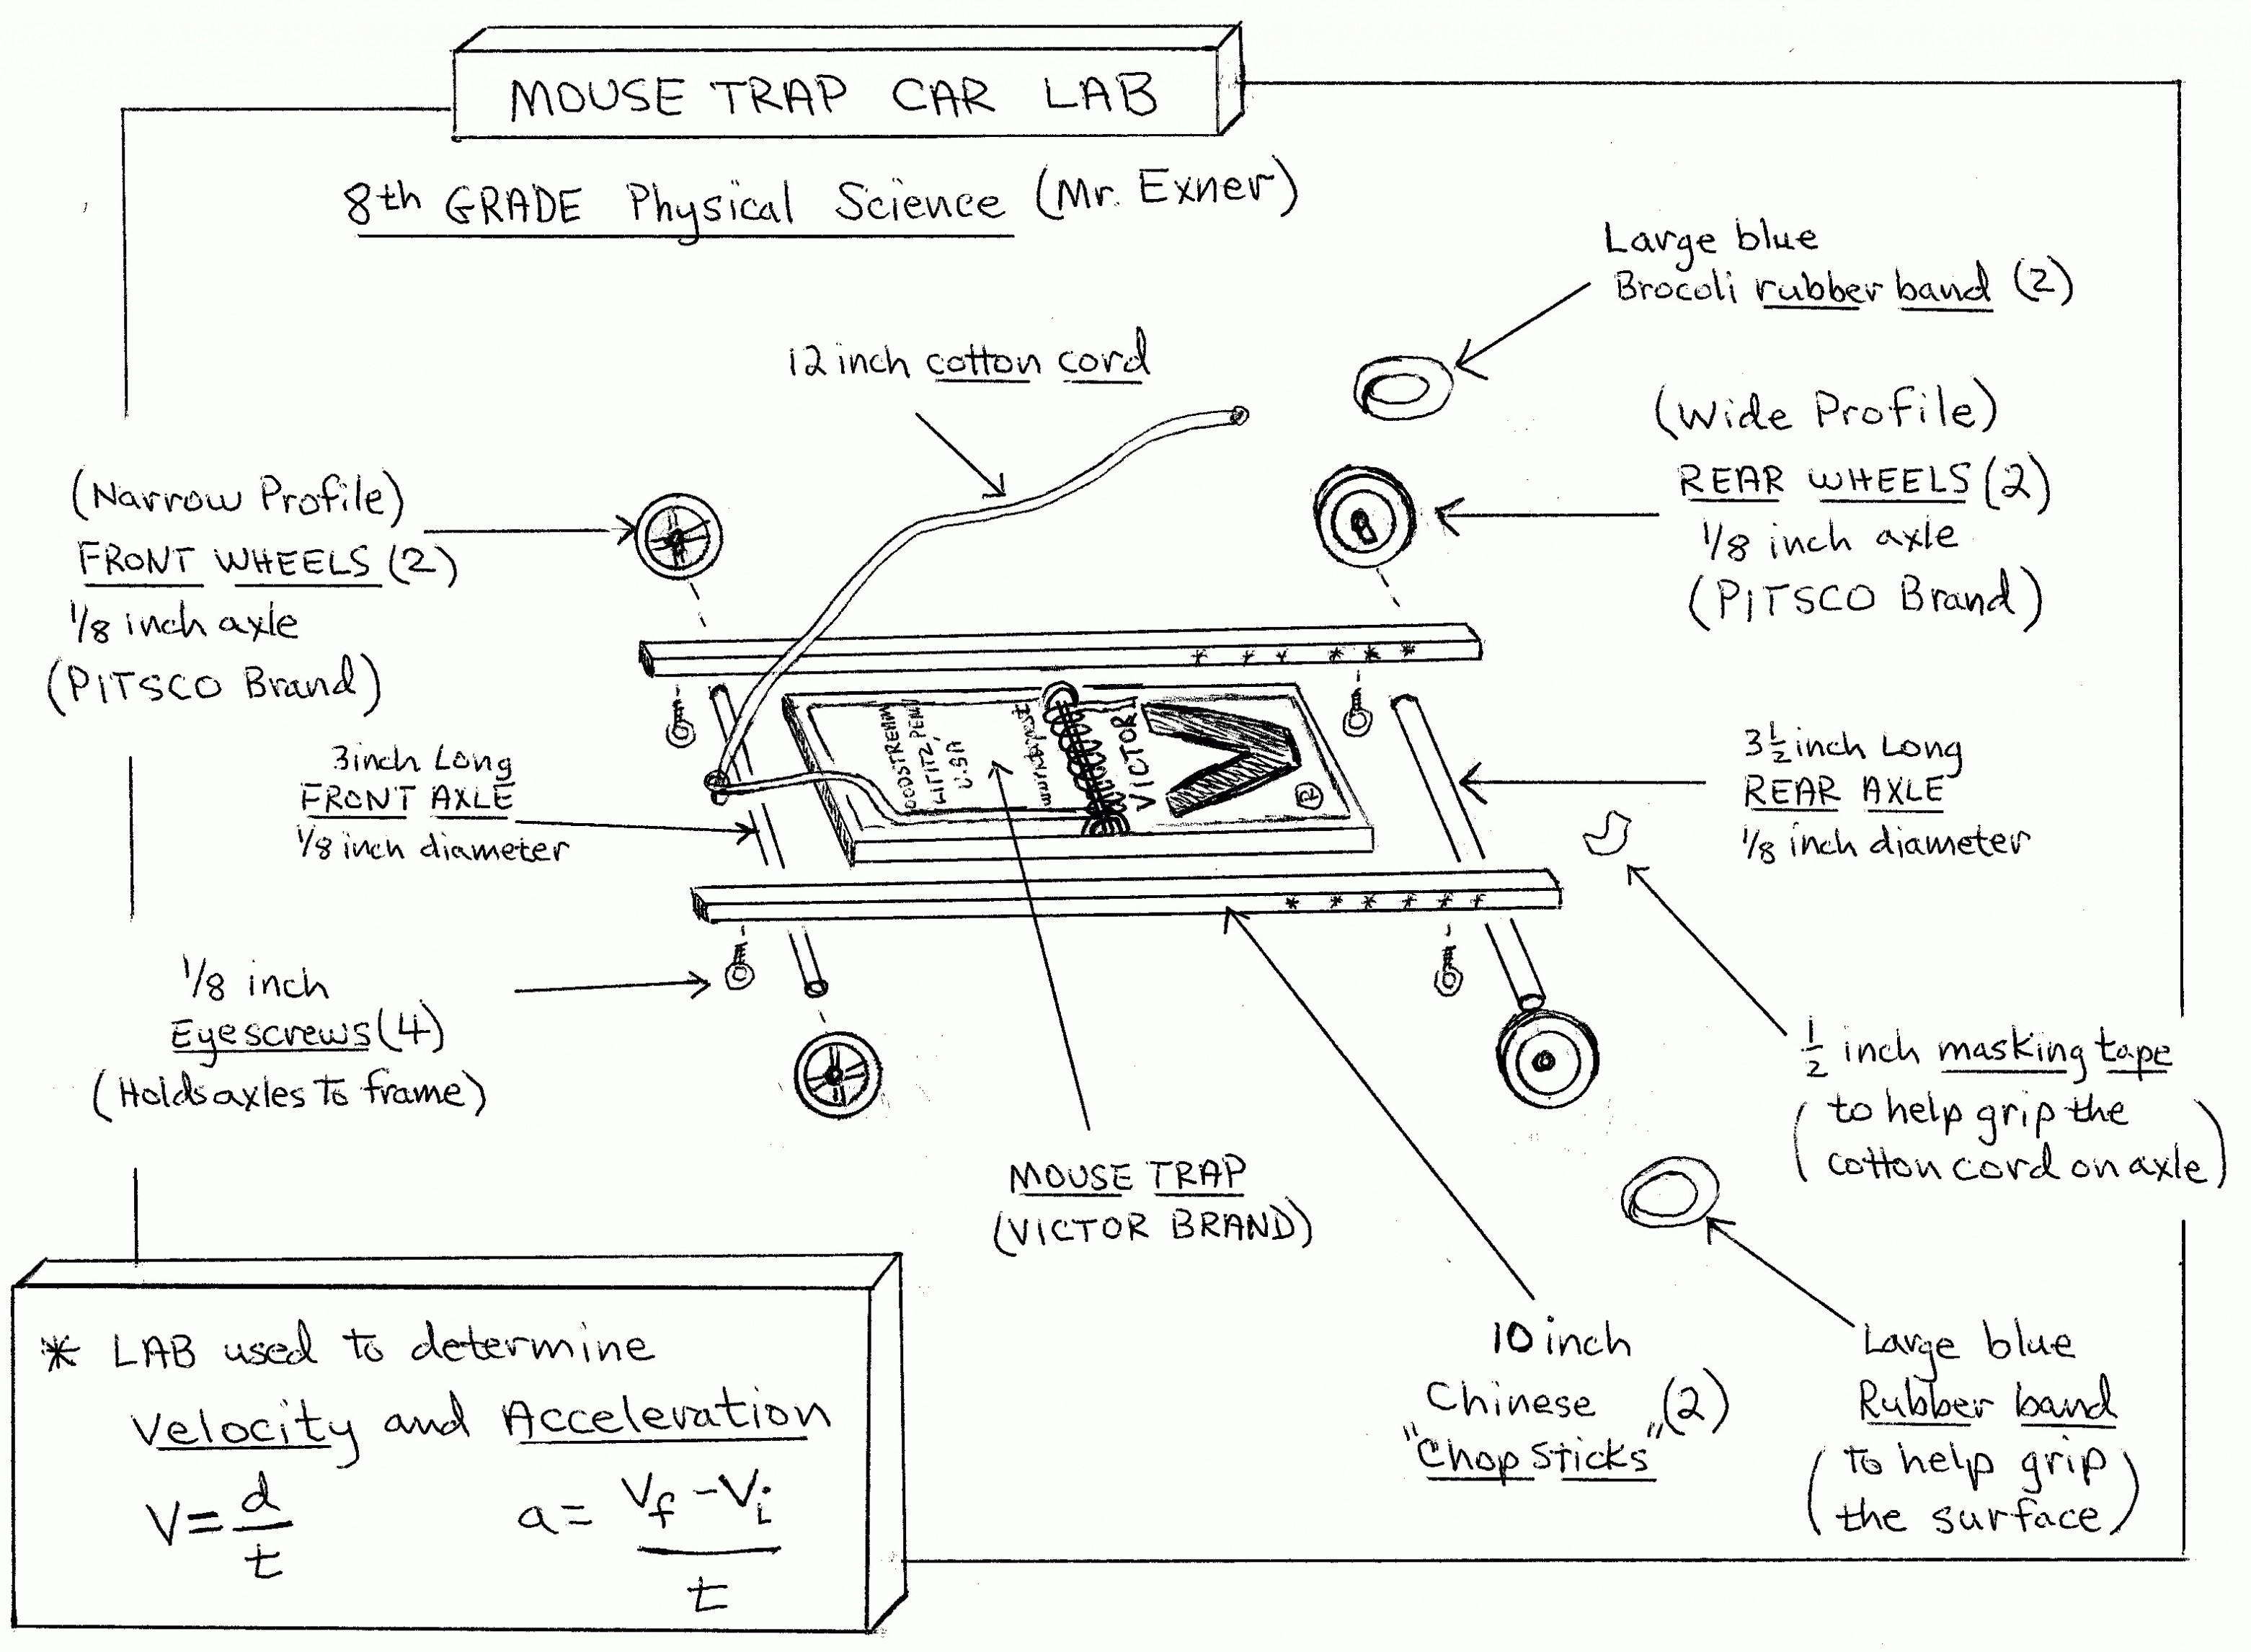 MOUSE TRAP CAR LAB
8th GRADE Physical Science (Mr. Exner)
Large blue
Brocoli rubber band (2)
12 inch cotton cord
(Wide Profile)
REAR WHEELS (2)
1/8 inch axle
(PITSCO Brand)
(Narrow Profile)
FRONT WHEELS (2)
1/8 inch axle
(PITSCO Brand)
3 inch Long
FRONT AXLE
1/8 inch diameter
LITITZ, PENN
U.S.A
VICTOR
R
3 1/2 inch Long
REAR AXLE
1/8 inch diameter
1/8 inch
Eyescrews (4)
(Holds axles To frame)
1/2 inch masking tape
(to help grip the
cotton cord on axle)
MOUSE TRAP
(VICTOR BRAND)
10 inch
Chinese
"Chop Sticks" (2)
Large blue
Rubber band
(To help grip
the surface)
* LAB used to determine
Velocity and Acceleration
V = d/t
a = Vf - Vi / t